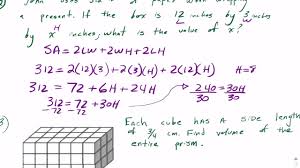 a present. If the box is 12 inches by 3 inches
by x inches, what is the value of x?
H
SA = 2LW + 2WH + 2LH
312 = 2(12)(3) + 2(3)(H) + 2(12)(H) H=8
312 = 72 + 6H + 24H
312 = 72 + 30H
-72 -72
240 = 30H
30 30
Each cube has a side length
of 3/4 cm. Find volume of the
entire prism.